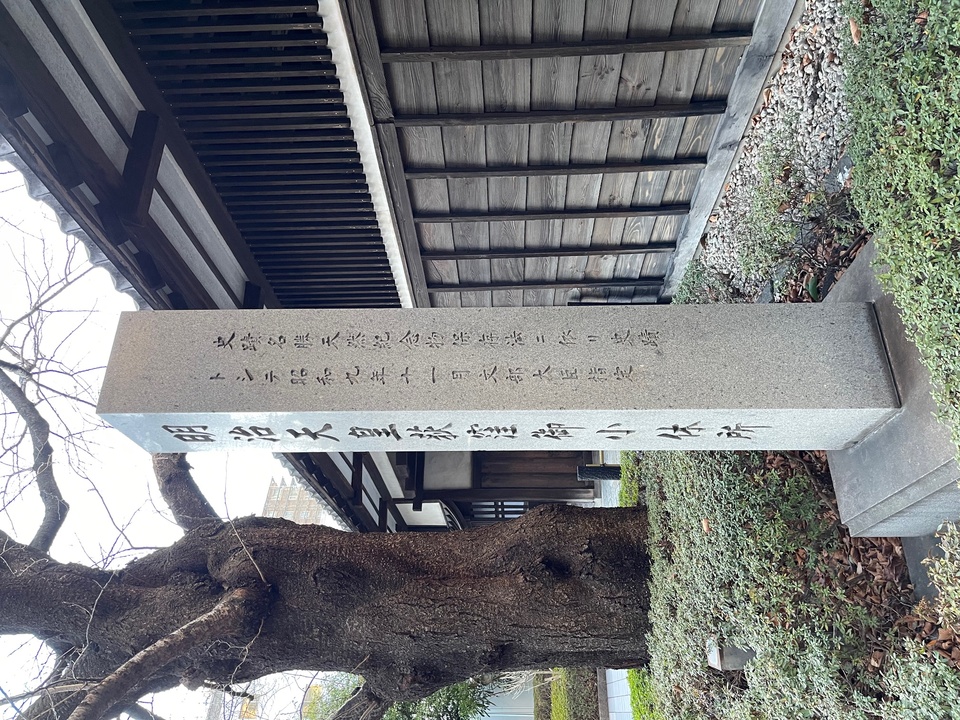 明治天皇荻窪御小休所
史蹟名勝天然紀念物保存法ニ依リ史蹟
トシテ昭和九年十一月文部大臣指定